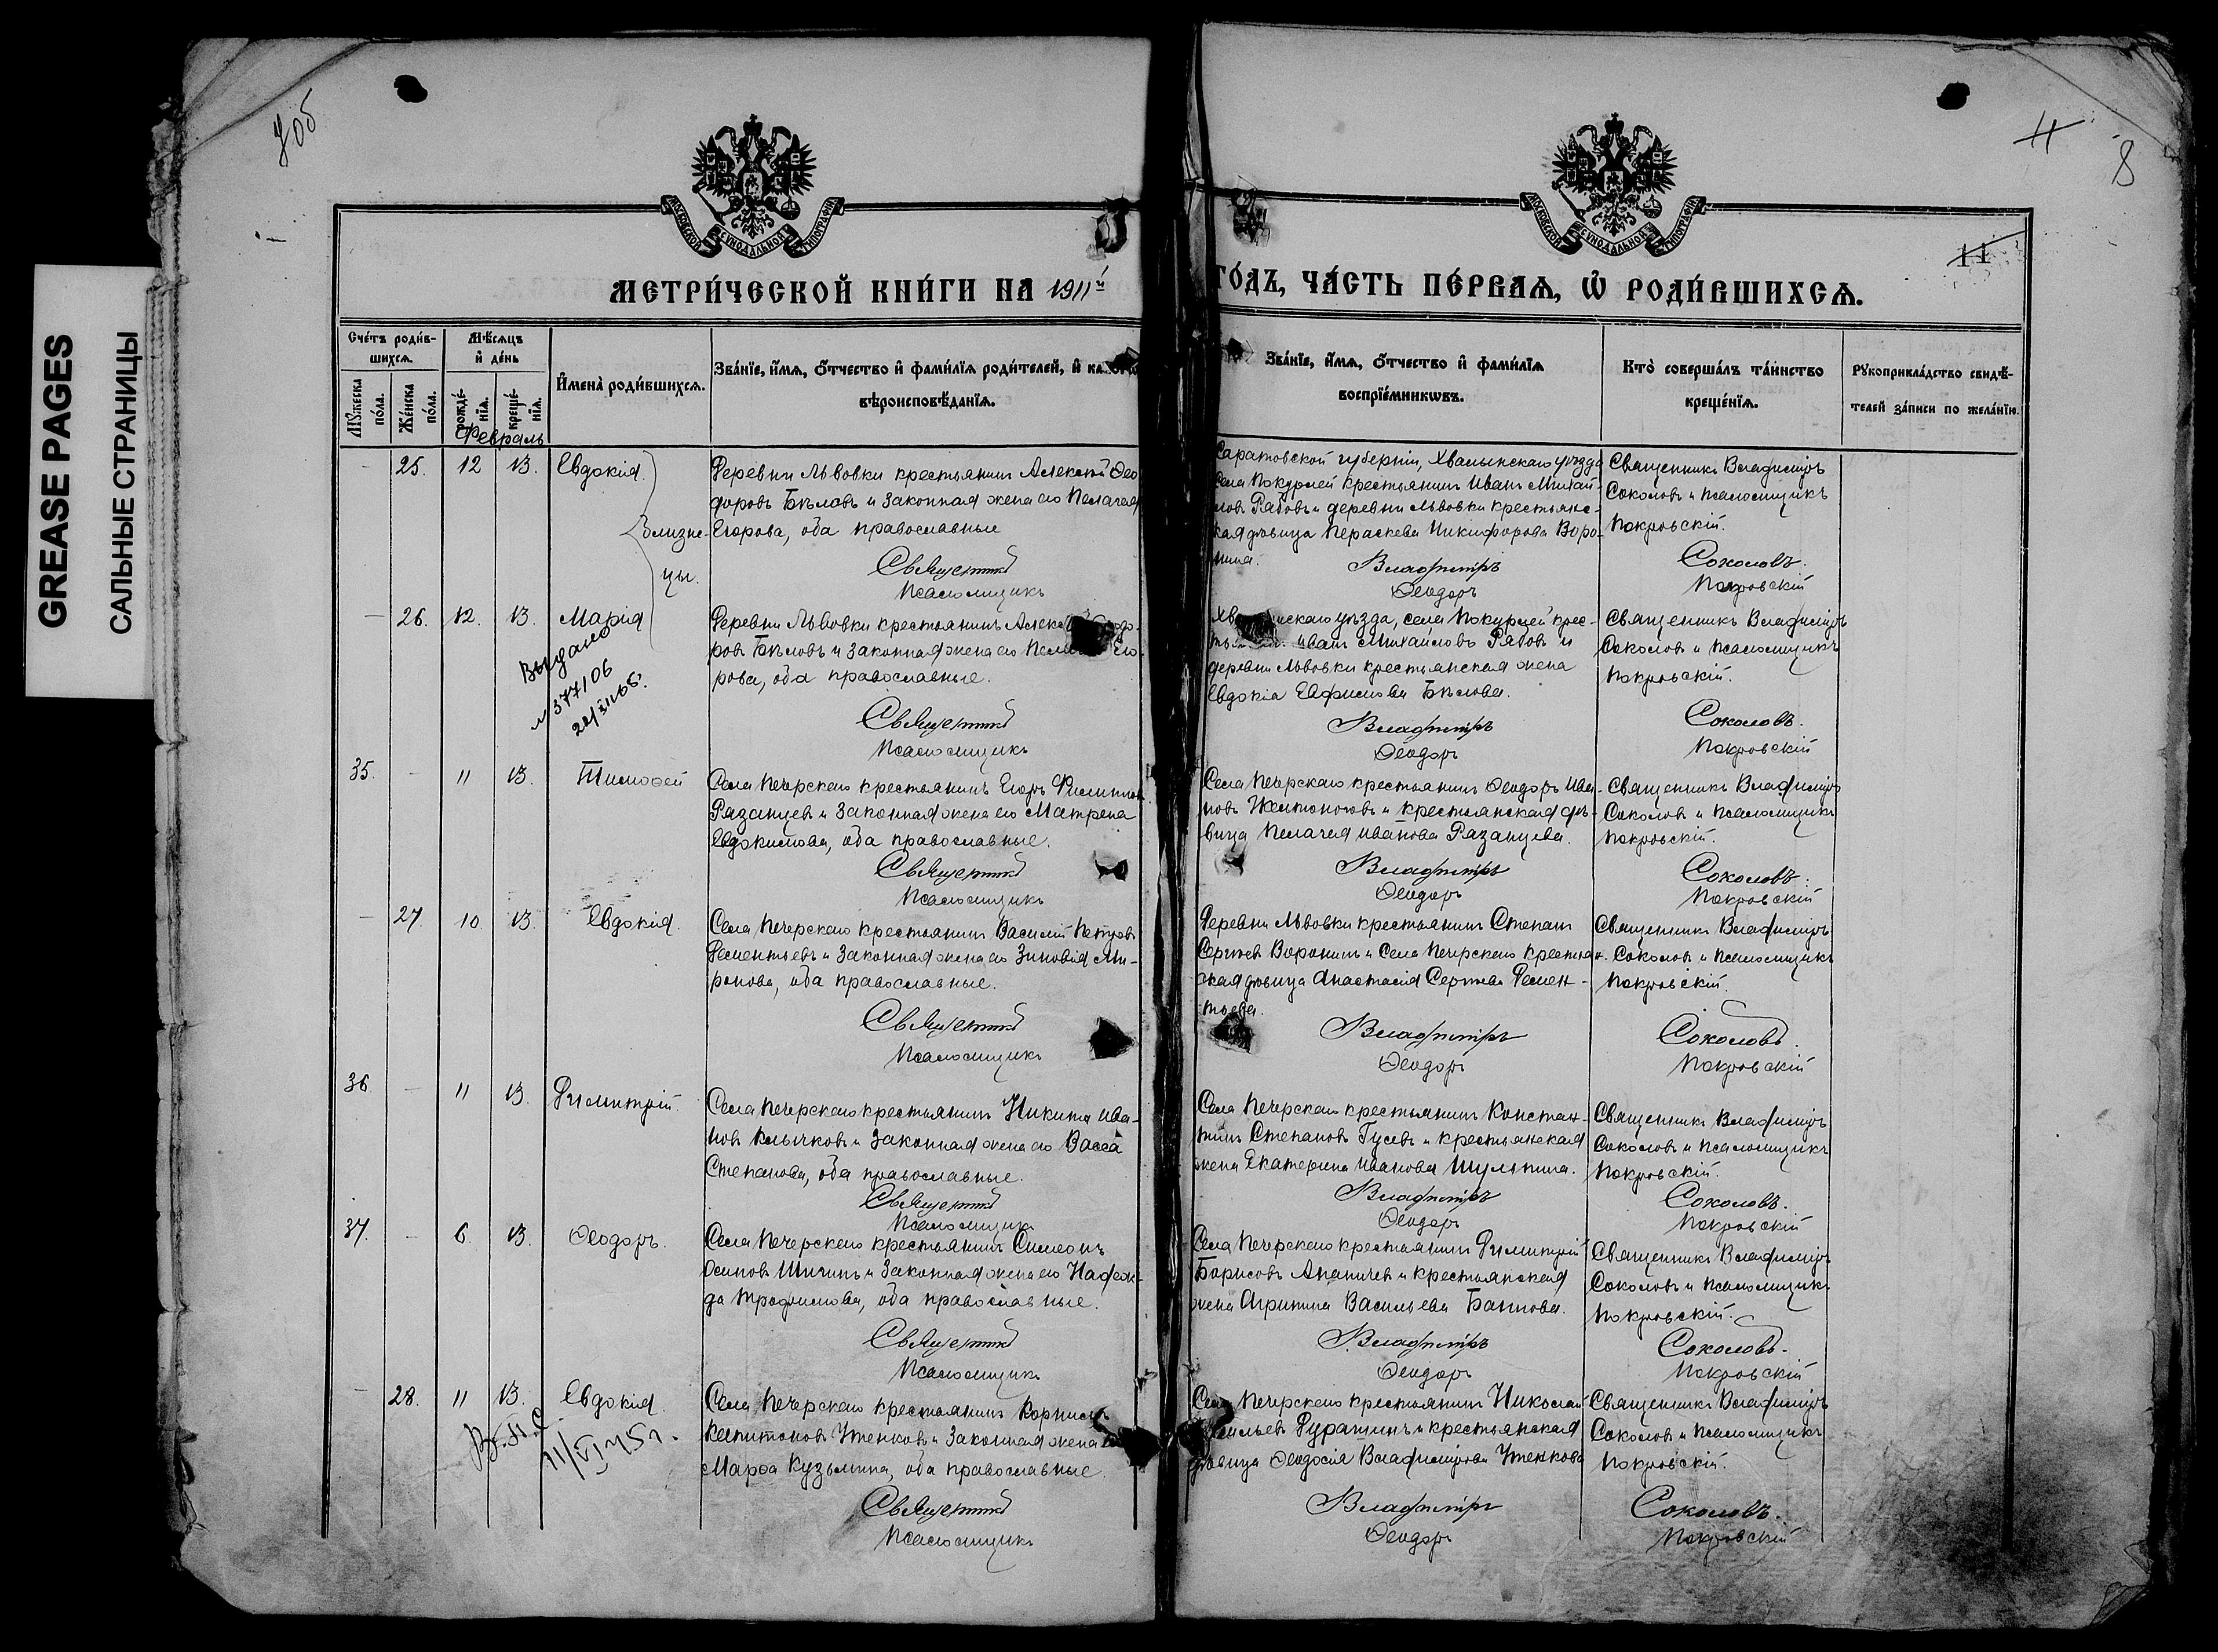 GREASE PAGES
САЛЬНЫЕ СТРАНИЦЫ
7об
11
8
11
МОСКОВСКОЙ СѴНОДАЛЬНОЙ ТИПОГРАФІИ
МОСКОВСКОЙ СѴНОДАЛЬНОЙ ТИПОГРАФІИ
МЕТРИ́ЧЕСКОЙ КНИ́ГИ НА 1911й ГО́ДЪ, ЧА́СТЬ ПЕ́РВАѦ, Ѡ҆ РОДИ́ВШИХСѦ.
Сче́тъ роди́в-
шихсѧ.
Мꙋ́жеска по́ла.
Же́нска по́ла.
Мѣ́сѧцъ
и҆ де́нь
рожде́-
нїѧ.
креще́-
нїѧ.
И҆мена̀ роди́вшихсѧ.
Зва́нїе, и҆́мѧ, ѻ҆́тчество и҆ фами́лїѧ роди́телей, и҆
вѣроисповѣ́данїѧ.
Зва́нїе, и҆́мѧ, ѻ҆́тчество и҆ фами́лїѧ
воспрїе́мникѡвъ.
Кто̀ соверша́лъ та́инство
креще́нїѧ.
Рꙋкоприкла́дство свидѣ́-
телей за́писи по жела́нїю.
Февраль
— 25. 12 13. Евдокія
Близне-
цы.
Деревни Львовки крестьянинъ Алексѣй Ѳео
доровъ Бѣловъ и законная жена его Пелагея
Егорова, оба православные
Священникъ
Псаломщикъ
Саратовской губерніи, Хвалынскаго уѣзда
села Покурлей крестьянинъ Иванъ Михай-
ловъ Рябовъ и деревни Львовки крестьянс-
кая дѣвица Параскева Никифорова Воро-
нина.
Владиміръ
Ѳеодоръ
Священникъ Владиміръ
Соколовъ и псаломщикъ
Покровскій.
Соколовъ.
Покровскій
— 26. 12. 13. Марія
Выдано
№ 377106
Деревни Львовки крестьянинъ
ровъ Бѣловъ и законная жена его
рова, оба православные.
Священникъ
Псаломщикъ
уѣзда, села Покурлей крес-
Иванъ Михайловъ Рябовъ и
деревни Львовки крестьянская жена
Евдокія Евфимова Бѣлова.
Владиміръ
Ѳеодоръ
Священникъ Владиміръ
Соколовъ и псаломщикъ
Покровскій.
Соколовъ.
Покровскій
35. — 11 13. Тимоѳей
Села Печерскаго крестьянинъ Егоръ Филиппов
Рязанцевъ и законная жена его Матрена
Евдокимова, оба православные.
Священникъ
Псаломщикъ
Села Печерскаго крестьянинъ Ѳеодоръ Ива-
новъ Желтоноговъ и крестьянская дѣ-
вица Пелагея Иванова Рязанцева.
Владиміръ
Ѳеодоръ
Священникъ Владиміръ
Соколовъ и псаломщикъ
Покровскій.
Соколовъ.
Покровскій
— 27. 10. 13. Евдокія.
Села Печерскаго крестьянинъ Василій Петровъ
Дементьевъ и законная жена его Зиновія Ми-
ронова, оба православные.
Священникъ
Псаломщикъ
Деревни Львовки крестьянинъ Степанъ
Сергѣевъ Воронинъ и села Печерскаго крестьян-
ская дѣвица Анастасія Сергѣева Демен-
тьева.
Владиміръ
Ѳеодоръ
Священникъ Владиміръ
Соколовъ и псаломщикъ
Покровскій.
Соколовъ.
Покровскій
36 — 11 13. Димитрій.
Села Печерскаго крестьянинъ Никита Ива-
новъ Клычковъ и законная жена его Васса
Степанова, оба православные.
Священникъ
Псаломщикъ
Села Печерскаго крестьянинъ Констан-
тинъ Степановъ Гусевъ и крестьянская
жена Екатерина Иванова Шуляпина.
Владиміръ
Ѳеодоръ
Священникъ Владиміръ
Соколовъ и псаломщикъ
Покровскій.
Соколовъ.
Покровскій
37. — 6. 13. Ѳеодоръ.
Села Печерскаго крестьянинъ Симеонъ
Осиповъ Шигинъ и законная жена его Надеж-
да Трофимова, оба православные.
Священникъ
Псаломщикъ
Села Печерскаго крестьянинъ Димитрій
Борисовъ Ананичев и крестьянская
жена Агрипина Васильева Баннова.
Владиміръ
Ѳеодоръ
Священникъ Владиміръ
Соколовъ и псаломщикъ
Покровскій.
Соколовъ.
Покровскій
— 28. 11 13. Евдокія.
Села Печерскаго крестьянинъ Корнилій
Капитоновъ Утенковъ и законная жена его
Марѳа Кузьмина, оба православные.
Священникъ
Псаломщикъ
Села Печерскаго крестьянинъ Николай
Васильевъ Дурагинъ и крестьянская
дѣвица Ѳеодосія Владимірова Утенкова
Владиміръ
Ѳеодоръ
Священникъ Владиміръ
Соколовъ и псаломщикъ
Покровскій.
Соколовъ.
Покровскій